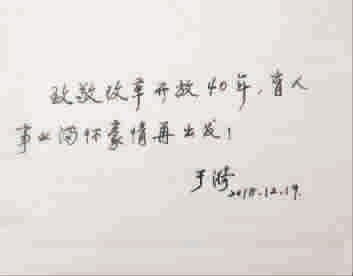 致敬改革开放40年,育人
事业满怀豪情再出发!
于漪
2018.12.19.